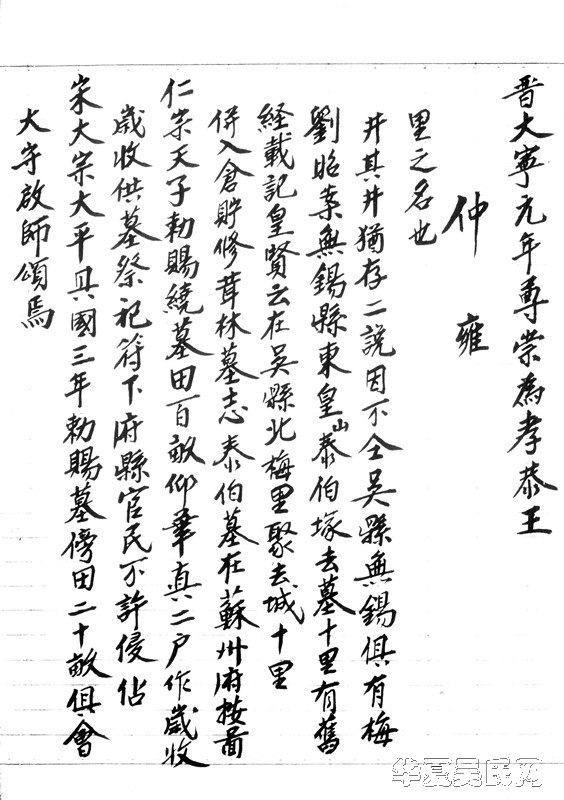 晋大寧元年尊崇為孝恭王
仲雍
里之名也
井其井猶存二說因不仝吳縣無錫俱有梅
劉昭案無錫縣東皇山泰伯塚去墓十里有舊
経載記皇賢云在吳縣北梅里聚去城十里
併入倉貯修葺林墓志泰伯墓在蘇州府按圖
仁宗天子勅賜繞墓田百畝仰華真二户作歲收
歲收供墓祭祀符下府縣官民不許侵佔
宋大宗大平具國三年勅賜墓傍田二十畝俱會
大守啟師頌焉
华夏吴氏网